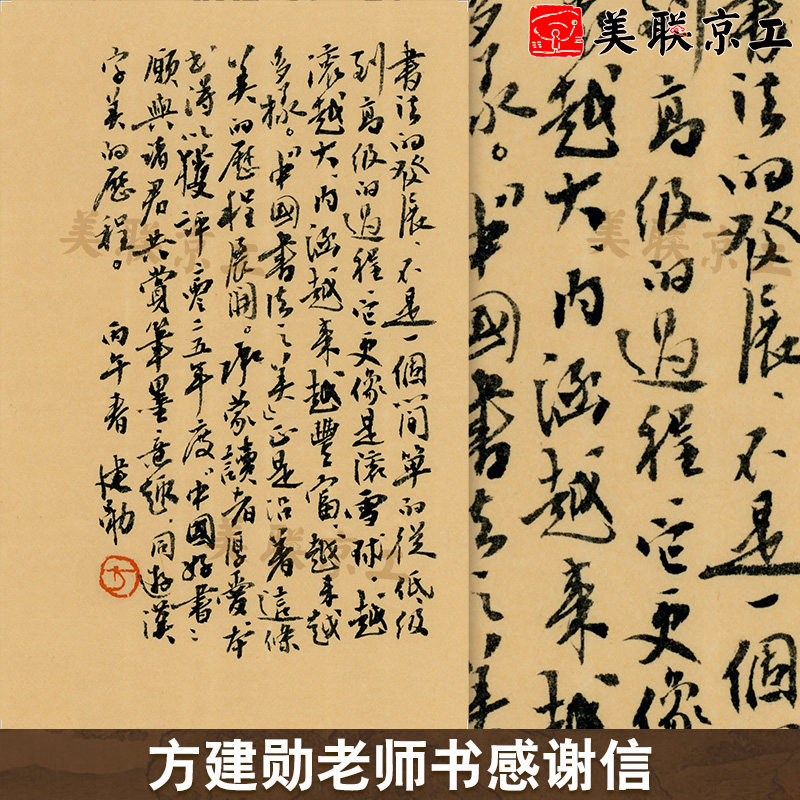 美联京工
書法的發展、不是一個簡單的從低級
到高級的過程、它更像是滚雪球、越
滚越大、内涵越来越豐富、越来越
多樣。《中國書法之美》正是沿着這條
美的歷程展開。承蒙讀者厚愛、本
书得以獲評二零二五年度“中國好書”、
願與諸君共賞筆墨意趣、同遊漢
字美的歷程。
丙午春 建勛
方
書法的發展、不是一個
到高級的過程、它更像
滚越大、内涵越来越
多樣。《中國書法之美
美联京工
美联京工
美联京工
方建勋老师书感谢信